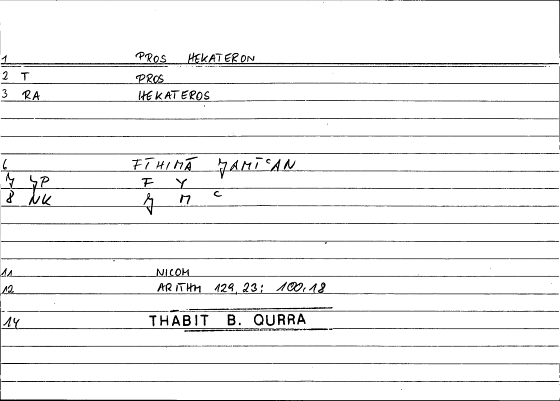 1 PROS HEKATERON
2 T PROS
3 RA HEKATEROS
6 FĪHIMĀ ǦAMĪcAN
7 ǦP F Y
8 NK Ǧ M c
11 NICOM
12 ARITHM 129,23; 100,18
14 THABIT B. QURRA